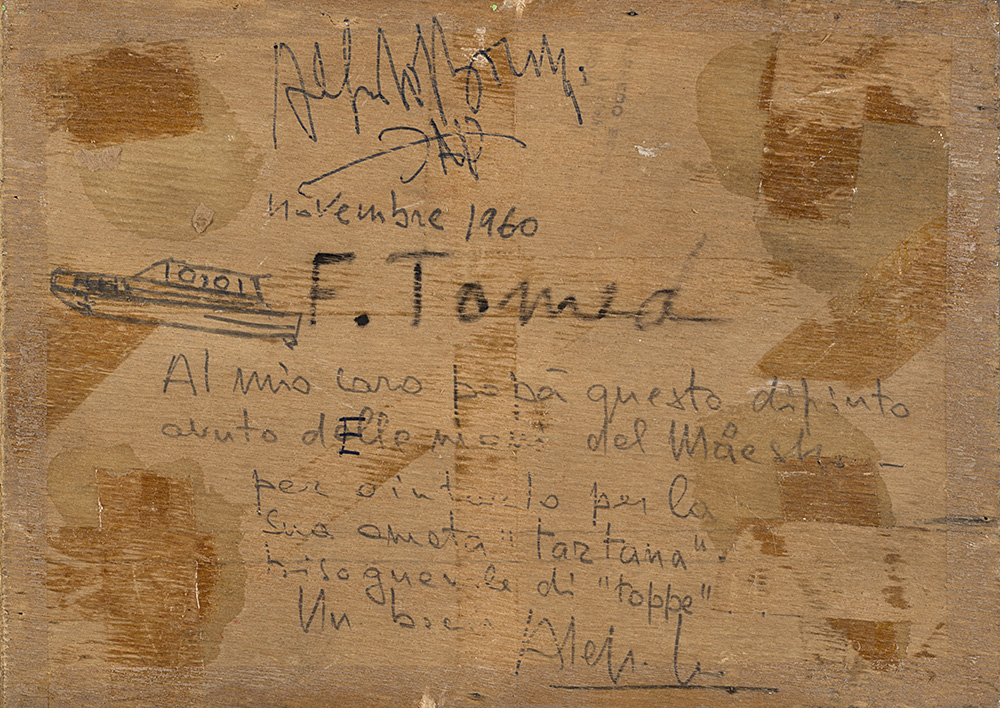 novembre 1960
F. Tomea
Al mio caro papà questo dipinto
avuto dElle mani del Maestro
per aiutarlo per la
sua amata "tartana".
bisognevole di "toppe"
Un